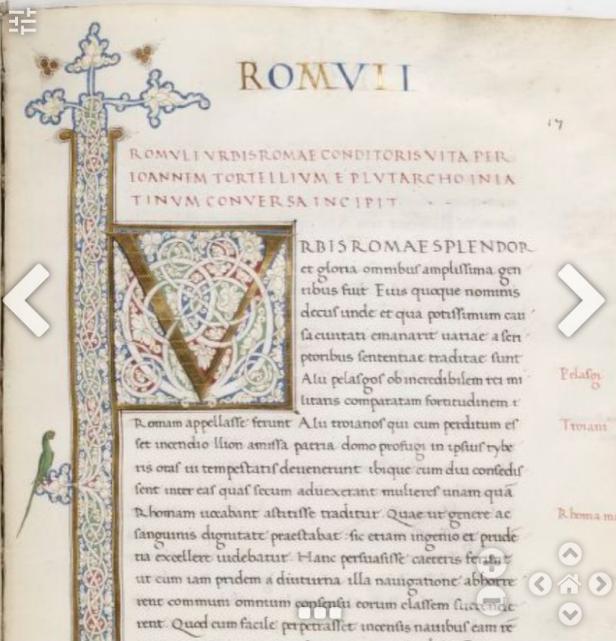 ROMVLI
17
ROMVLI VRBIS ROMAE CONDITORIS VITA PER
IOANNEM TORTELLIVM E PLVTARCHO IN LA
TINVM CONVERSA INCIPIT
VRBIS ROMAE SPLENDOR
et gloria omnibus amplissima gen
tibus fuit Eius quoque nominis
decus unde et qua potissimum cau
sa ciuitati emanarit uariae a scri
ptoribus sententiae traditae sunt
Alii pelasgos ob incredibilem rei mi
litaris comparatam fortitudinem
Romam appellasse ferunt Alii troianos qui cum perditum es
set incendio Ilion amissa patria domo profugi in ipsius tybe
ris oras ui tempestatis deuenerunt ibique cum diu consedis
sent inter eas quas secum aduexerant mulieres unam quā
Rhomam uocabant astitisse traditur Quae ut genere ac
sanguinis dignitate praestabat sic etiam ingenio et prude
tia excellere uidebatur Hanc persuasisse caeteris ferunt
ut cum iam pridem a diuturna illa nauigatione abhorre
rent communi omnium consensu eorum classem succende
rent Quod cum facile perpetrasset incensis nauibus eam re
Pelasgi
Troiani
Rhoma